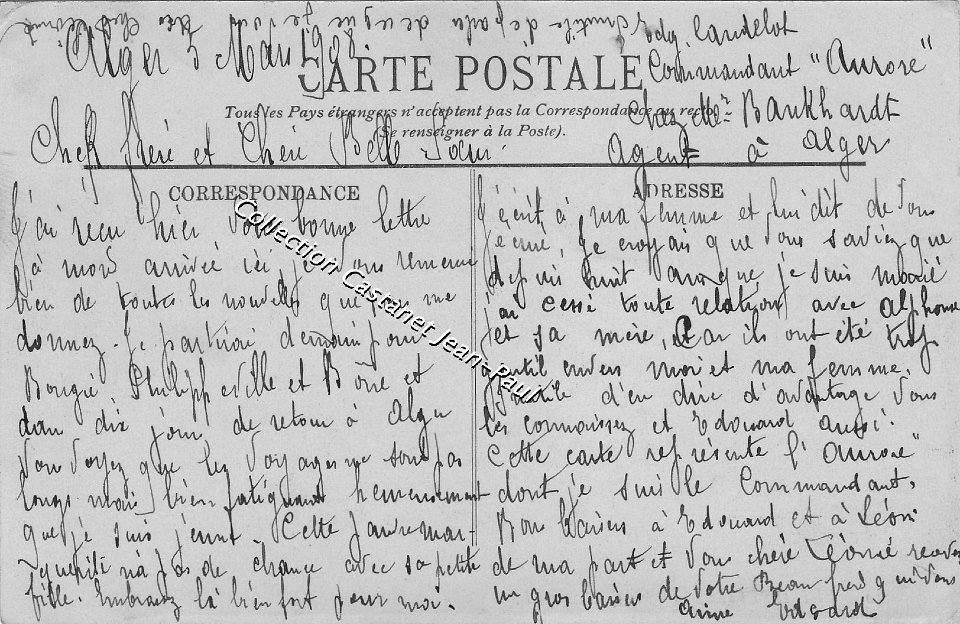 Inutile de parler de
Alger 5 Mars 1908
Edg. Candelot
Commandant "Aurore"
CARTE POSTALE
Tous les Pays étrangers n'acceptent pas la Correspondance au recto
(Se renseigner à la Poste).
Chez Mr Bankhardt
Agent à Alger
Cher frère et Chère Belle Sœur
CORRESPONDANCE
J'ai reçu hier votre bonne lettre
à mon arrivée ici, je vous remercie
bien de toutes les nouvelles que vous me
donnez. Je partirai demain pour
Bougie Philippeville et Bône et
dans dix jours de retour à Alger
Vous voyez que les voyages ne sont pas
longs mais bien fatiguant heureusement
que je suis jeune. Cette pauvre Mar-
-guerite n'a pas de chance avec sa petite
fille. Embrassez là bien fort pour moi.
ADRESSE
J'écrit à ma femme et lui dit de vous
écrire, Je croyais que vous saviez que
depuis huit ans que je suis marié
j'ai cessé toute relation avec Alphonse
et sa mère, Car ils ont été trop
gentil envers moi et ma femme.
Inutile d'en dire d'avantage vous
les connaissez et Edouard aussi.
Cette carte représente l'"Aurore"
dont je suis le Commandant.
Bons baisers à Edouard et à Léon
de ma part et vous chère Léonie recevez
un gros baiser de votre Beau frère qui vous
aime Edgard
Collection Castaner Jean-Paul